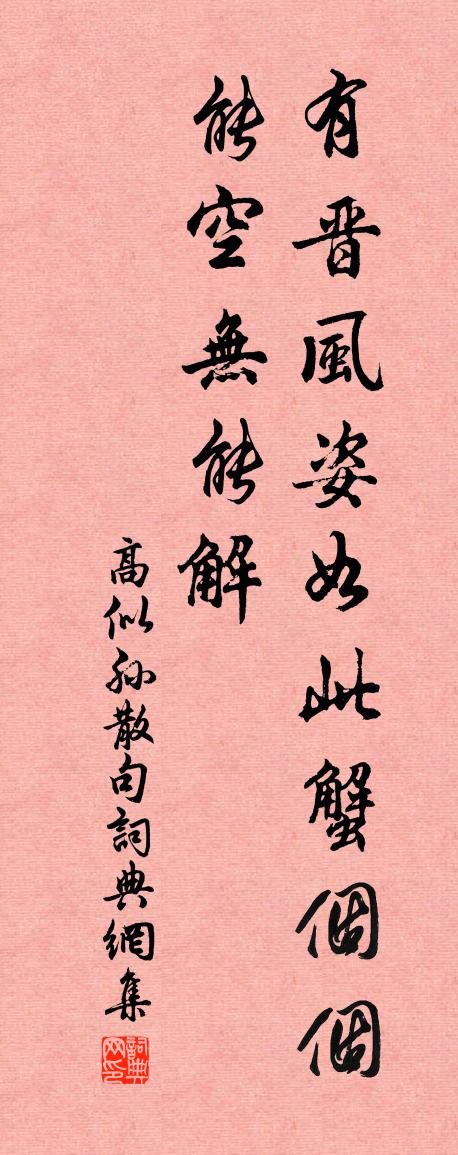 有晋風姿如此蟹個個
能空無能解
高似孙散句詞典網集
詞典网印